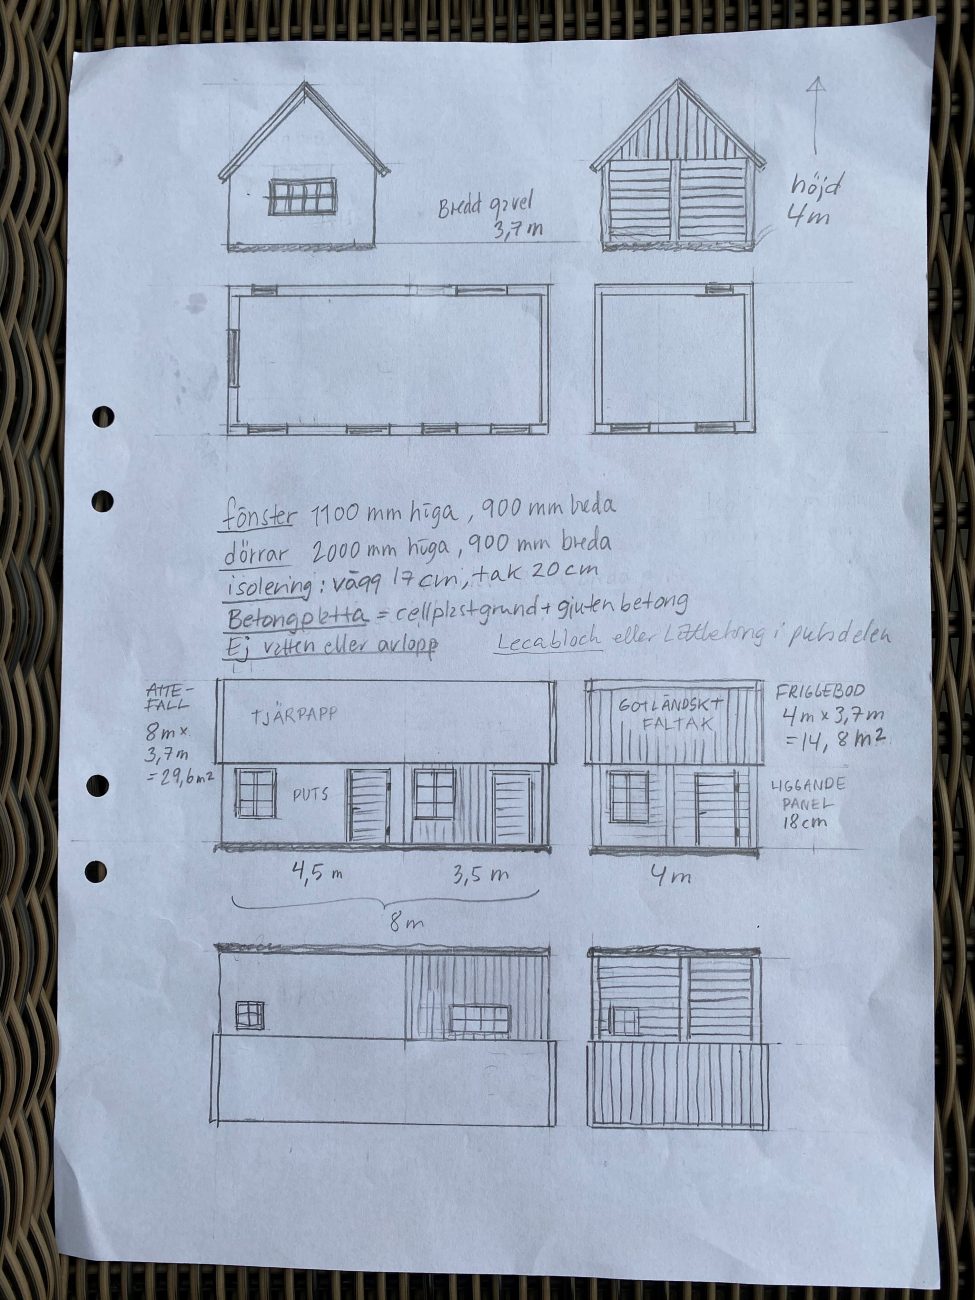 Bredd gavel
3,7 m
höjd
4 m
fönster 1100 mm höga, 900 mm breda
dörrar 2000 mm höga, 900 mm breda
isolering: vägg 17 cm, tak 20 cm
Betongplatta = cellplastgrund + gjuten betong
Ej vatten eller avlopp
Lecablock eller Lättbetong i putsdelen
ATTE-
FALL
8 m x
3,7 m
= 29,6 m²
TJÄRPAPP
GOTLÄNDSKT
FALTAK
FRIGGEBOD
4 m x 3,7 m
= 14,8 m²
PUTS
LIGGANDE
PANEL
18 cm
4,5 m
3,5 m
4 m
8 m